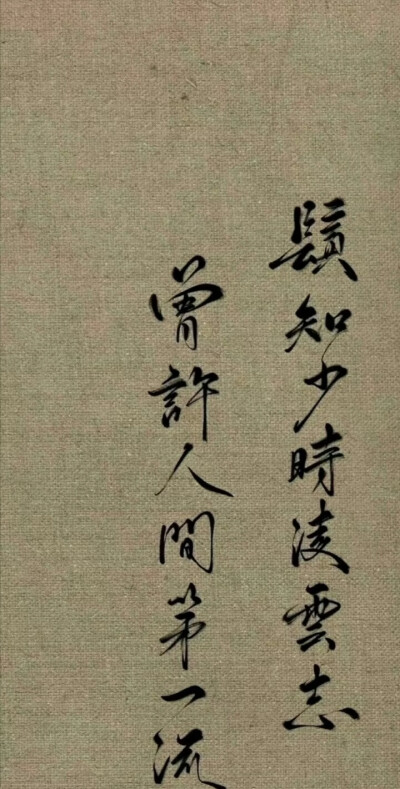 须知少時凌雲志
曾許人間第一流